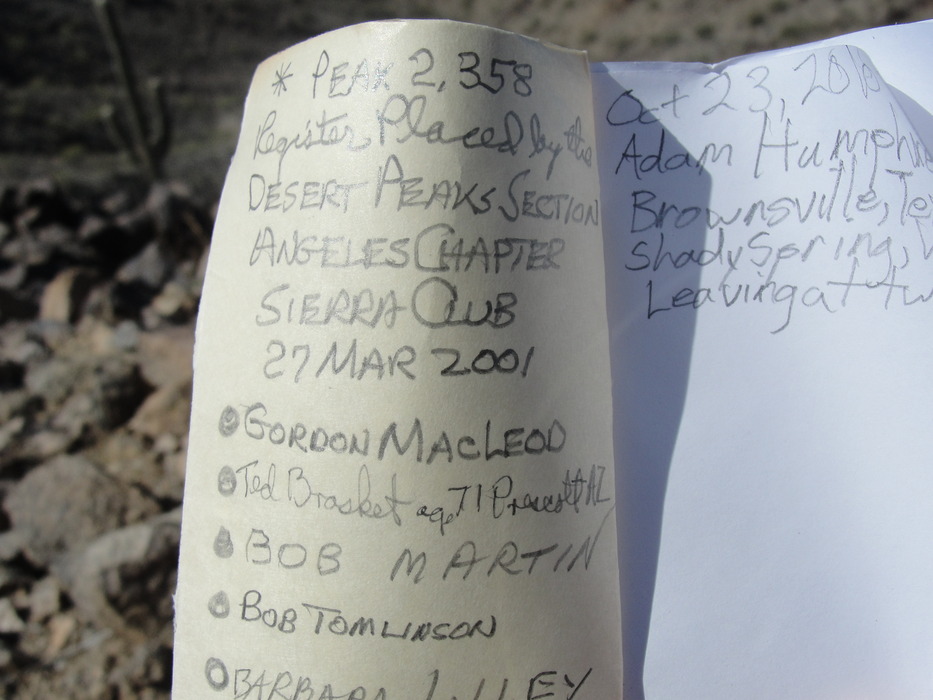 * PEAK 2,358
Register Placed by the
DESERT PEAKS SECTION
ANGELES CHAPTER
SIERRA CLUB
27 MAR 2001
GORDON MACLEOD
Ted Brasket age 71 Prescott AZ
BOB MARTIN
BOB TOMLINSON
BARBARA LILLEY
Oct 23, 201
Adam Humph
Brownsville, Te
Shady Spring,
Leaving at tw